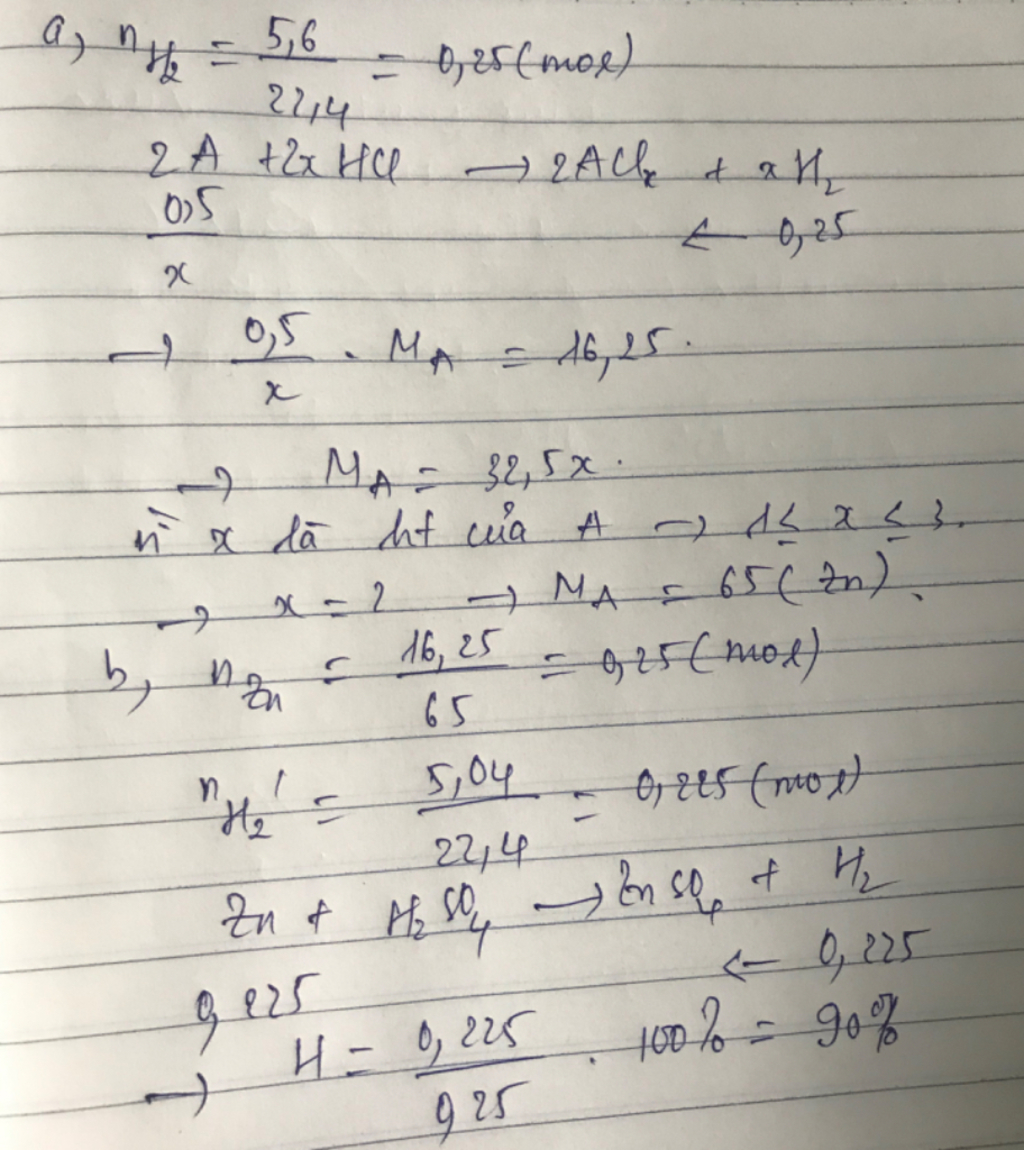 a, n_H₂ = 5,6 / 22,4 = 0,25 (mol)
2A + 2x HCl → 2AClₓ + x H₂
0,5 / x ← 0,25
→ 0,5 / x . M_A = 16,25.
→ M_A = 32,5x.
vì x là ht của A → 1 ≤ x ≤ 3.
→ x = 2 → M_A = 65 (Zn).
b, n_Zn = 16,25 / 65 = 0,25 (mol)
n_H₂' = 5,04 / 22,4 = 0,225 (mol)
Zn + H₂SO₄ → ZnSO₄ + H₂
0,225 ← 0,225
→ H = 0,225 / 0,25 . 100% = 90%